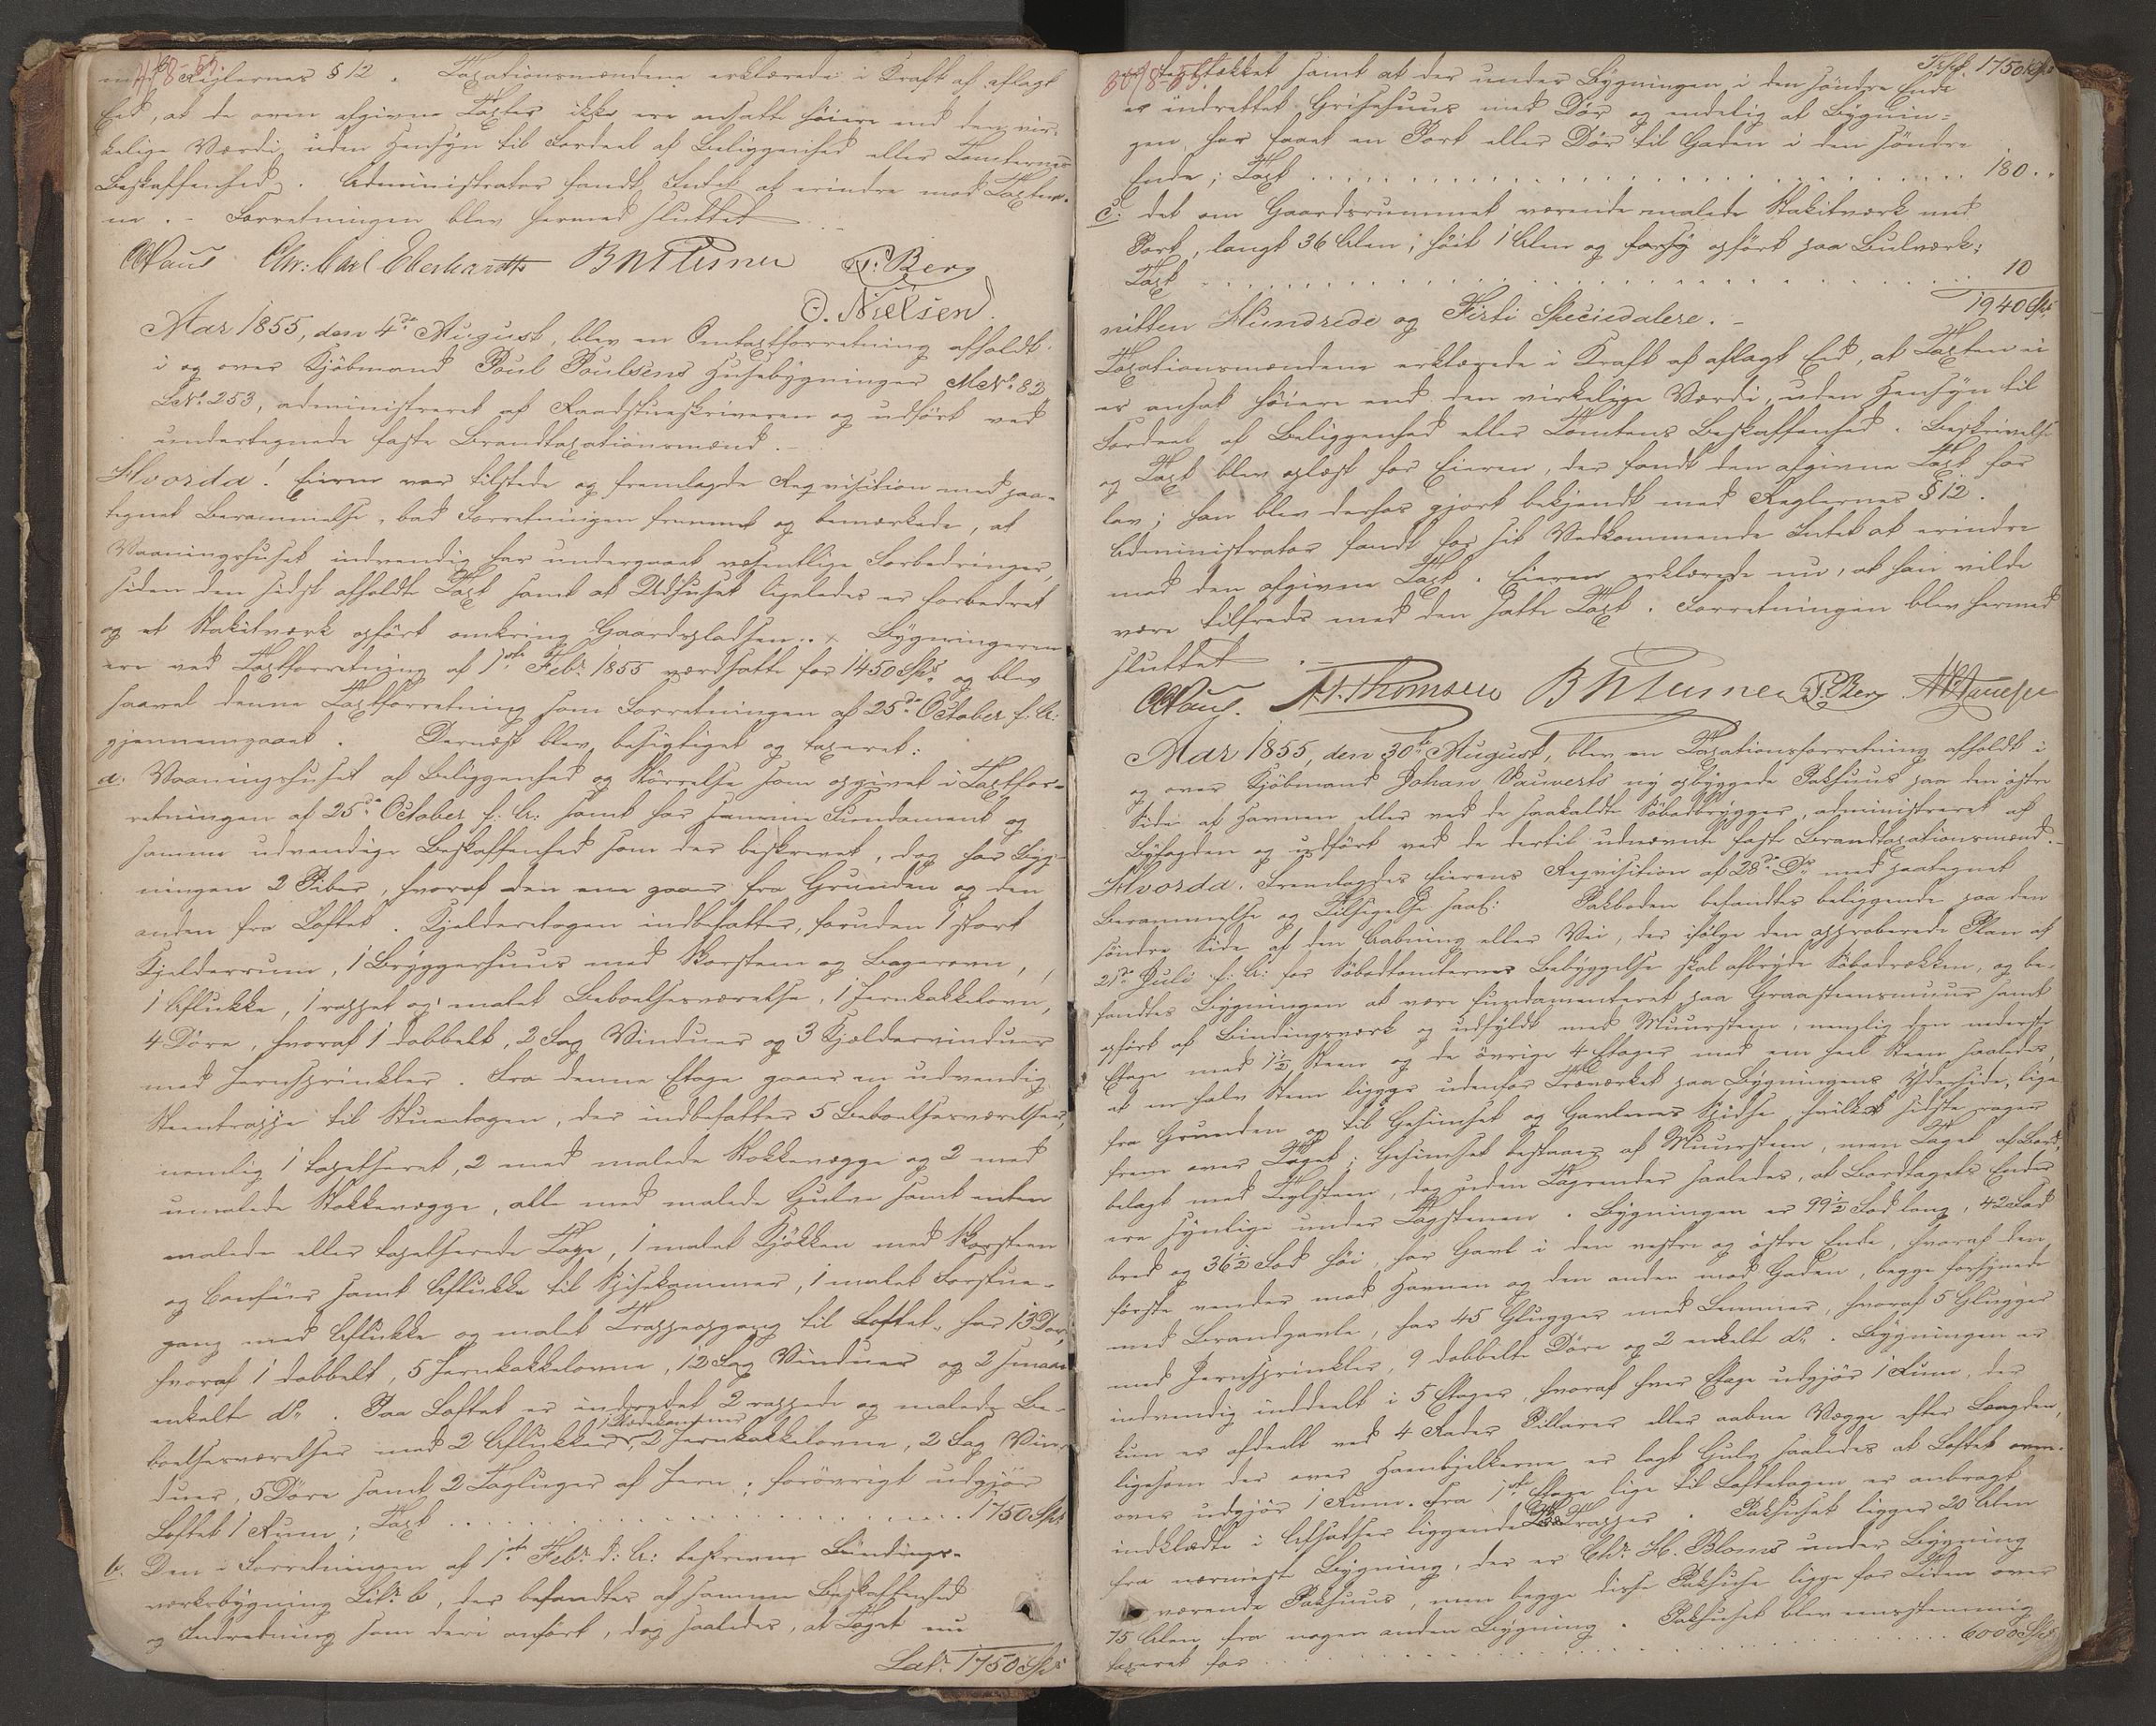 4/8-55.
med Reglernes § 12. Taxationsmændene erklærede i Kraft af aflagt
Eed, at de oven afgivne Taxter ikke ere ansatte høiere end den vir-
kelige Værdi uden Hensyn til Fordeel af Beliggenhed eller Tomternes
Beskaffenhed. Administrator fandt Intet at erindre mod Taxter-
ne. - Forretningen blev hermed sluttet
CPaus Chr: Carl Eberhardth BNTesner P. Berg
O. Nielsen.
Aar 1855, den 4de August, blev en Omtaxtforretning afholdt
i og over Kjöbmand Poul Poulsens Huusbygninger MNo. 82
LNo. 253, administreret af Raadstueskriveren og udført ved
undertegnede faste Brandtaxationsmænd. -
Hvorda! Eieren var tilstede og fremlagde Reqvisition med paa-
tegnet Berammelse, bad Forretningen fremmet og bemærkede, at
Vaaningshuset indvendig har undergaaet væsentlige Forbedringer,
siden den sidst afholdte Taxt samt at Udhuset ligeledes er forbedret
og et Stakitværk opført omkring Gaardspladsen. Bygningerne
ere ved Taxtforretning af 1ste Febr. 1855 værdsatte for 1450 Spd. og blev
saavel denne Taxtforretning som Forretningen af 25de October f: A:
gjennemgaaet. Dernæst blev besigtiget og taxeret:
a. Vaaningshuset af Beliggenhed og Størrelse som opgivet i Taxtfor-
retningen af 25de October f: A: samt har samme Fundament og
samme udvendige Beskaffenhed som der beskrevet, dog har Byg-
ningen 2 Piber, hvoraf den ene gaaer fra Grunden og den
anden fra Loftet. Kjelderetagen indbefatter, foruden 1 stort
Kjelderrum, 1 Bryggerhuus med Skorsteen og Bagerovn,
1 Aflukke, 1 rappet og malet Beboelsesværelse, 1 Jernkakkelovn,
4 Døre, hvoraf 1 dobbelt, 2 Fag Vinduer og 3 Kjældervinduer
med Jernsprinkler. Fra denne Etage gaaer en udvendig
Steentrappe til Stueetagen, der indbefatter 5 Beboelsesværelser,
nemlig 1 tapetseret, 2 med malede Stokkevægge og 2 med
umalede Stokkevægge, alle med malede Gulve samt enten
malede eller tapetserede Tage, 1 malet Kjøkken med Skorsteen
og Comfur samt Aflukke til Spisekammer, 1 malet Forstue-
gang med Aflukke og malet Trappeopgang til Loftet, har 13 Døre,
hvoraf 1 dobbelt, 5 Jernkakkelovne, 12 Fag Vinduer og 2 smaae
enkelte do. Paa Loftet er indredet 2 rappede og malede Be-
boelsesværelser med 2 Aflukker, 2 Jernkakkelovne, 2 Fag Vin-
duer, 5 Døre samt 2 Tagluger af Jern; forøvrigt udgjør
Loftet 1 Rum; Taxt . . . . . . . . . . . . 1750 Spd.
b. Den i Forretningen af 1ste Febr. d: A: beskrevne Bindings-
værksbygning Litr. b, der befandtes af samme Beskaffenhed
og Indredning som deri anført, dog saaledes, at Taget nu
Lat. 1750 Spd.
30/8-55.
Trspt. 1750 Spd.
er tegltækket samt at der under Bygningen i den søndre Ende
er indrettet Grisehuus med Dør og endelig at Bygnin-
gen har faaet en Port eller Dør til Gaden i den søndre
Ende; Taxt . . . . . . . . . . . . 180 . .
c. det om Gaardsrummet værende malede Stakitværk med
Port, langt 36 Alen, høit 1 Alen og opført paa Bulværk;
Taxt . . . . . . . . . . . . 10
1940 Spd.
nitten Hundrede og Firti Speciedalere. -
Taxationsmændene erklærede i Kraft af aflagt Eed, at Taxten ei
er ansat høiere end den virkelige Værdi, uden Hensyn til
Fordeel af Beliggenhed eller Tomtens Beskaffenhed. Beskrivelse
og Taxt blev oplæst for Eieren, der fandt den afgivne Taxt for
lav; han blev derhos gjort bekjendt med Reglernes § 12.
Administrator fandt for sit Vedkommende Intet at erindre
mod den afgivne Taxt. Eieren erklærede nu, at han vilde
være tilfreds med den satte Taxt. Forretningen blev hermed
sluttet. -
CPaus. H. Thomsen BNTesner P. Berg
Aar 1855, den 30te August, blev en Taxationsforretning afholdt i
og over Kjöbmand Johan Vauverts ny opbyggede Pakhuus paa den østre
Side af Havnen eller ved de saakaldte Söbodbrygger, administreret af
Byfogden og udført ved de dertil udnævnte faste Brandtaxationsmænd. -
Hvorda. Fremlagdes Eierens Reqvisition af 28de ds. med paategnet
Berammelse og Tilsigelse saal: Pakboden befandtes beliggende paa den
søndre Side af den Aabning eller Vei, der ifølge den approberede Plan af
21de Juli f: A: for Söbodtomternes Bebyggelse skal afbryde Söbodrækken, og be-
fandtes Bygningen at være fundamenteret paa Graasteensmuur samt
opført af Bindingsværk og udfyldt med Muursteen, nemlig den nederste
Etage med 1½ Steen og de øvrige 4 Etager med een heel Steen saaledes,
at en halv Steen ligger udenfor Træværket paa Bygningens Yderside, lige
fra Grunden og til Gesimset og Gavlenes Spidse, hvilket sidste rager
frem over Taget; Gesimset bestaaer af Muursteen, men Taget af Bord,
belagt med Teglsteen, dog uden Tagrender saaledes, at Bordtagets Ender
ere synlige under Tagstenen. Bygningen er 99½ Fod lang, 42 Fod
bred og 36½ Fod høi, har Gavl i den vestre og østre Ende, hvoraf den
første vender mod Havnen og den anden mod Gaden, begge forsynede
med Brandgavle, har 45 Glugger med Lemmer, hvoraf 5 Glugger
med Jernsprinkler, 9 dobbelte Døre og 2 enkelte do. Bygningen er
indvendig inddeelt i 5 Etager, hvoraf hver Etage udgjør 1 Rum, der
kun er afdeelt ved 4 Rader Pillarer eller aabne Vægge efter Længden,
ligesom der over Haanbjelkerne er lagt Gulv saaledes at Loftet oven-
over udgjør 1 Rum. Fra 1ste Etage lige til Loftetagen er anbragt
indklædte i Afsatser liggende Trapper. Pakhuset ligger 20 Alen
fra nærmeste Bygning, der er Chr. H. Bloms under Bygning
værende Pakhuus, men begge disse Pakhuse ligge for Tiden over
75 Alen fra nogen anden Bygning. Pakhuset blev eenstemmig
taxeret for . . . . . . . . . . . . 6000 Spd.